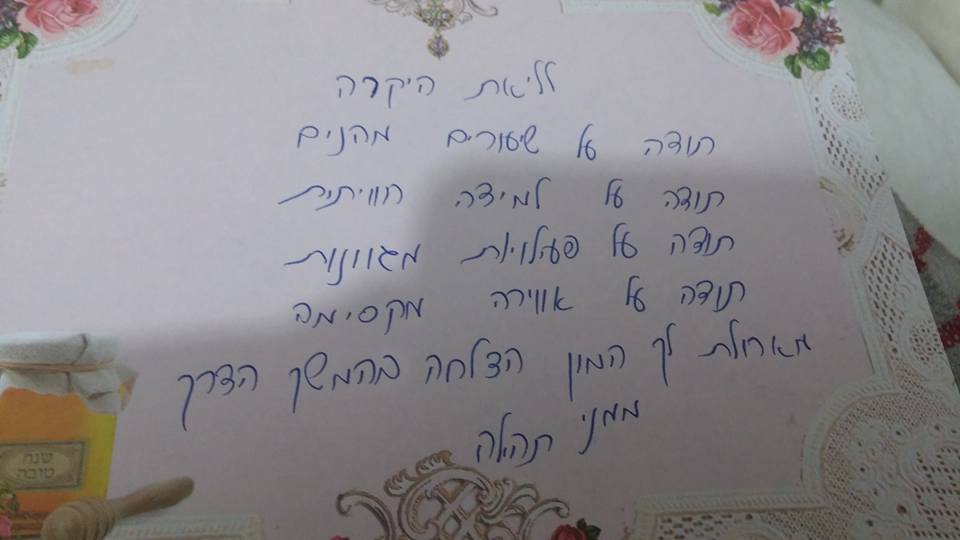 לליאת היקרה
תודה על שיעורים מהנים
תודה על למידה חוויתית
תודה על פעלויות מגוונות
תודה על אווירה מקסימה
מאחלת לך המון הצלחה בהמשך הדרך
ממני תהאלה
שנה
טובה